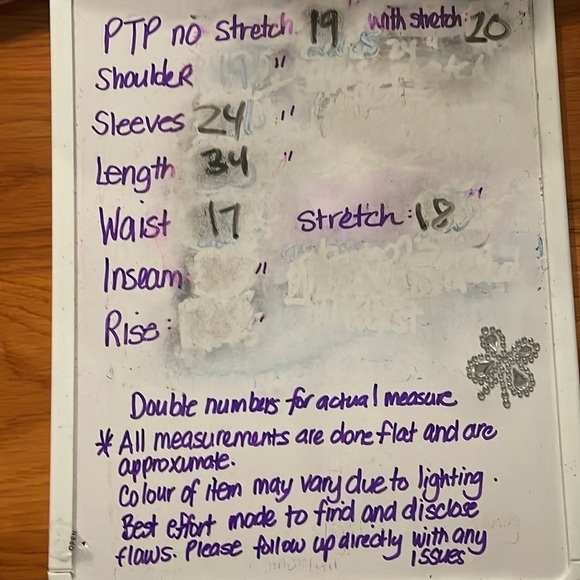 PTP no stretch 19 with stretch: 20
Shoulder "
Sleeves 24 "
Length 34 "
Waist 17 Stretch: 18 "
Inseam "
Rise: "
Double numbers for actual measure
* All measurements are done flat and are
approximate.
Colour of item may vary due to lighting.
Best effort made to find and disclose
flaws. Please follow up directly with any
issues
OPEN